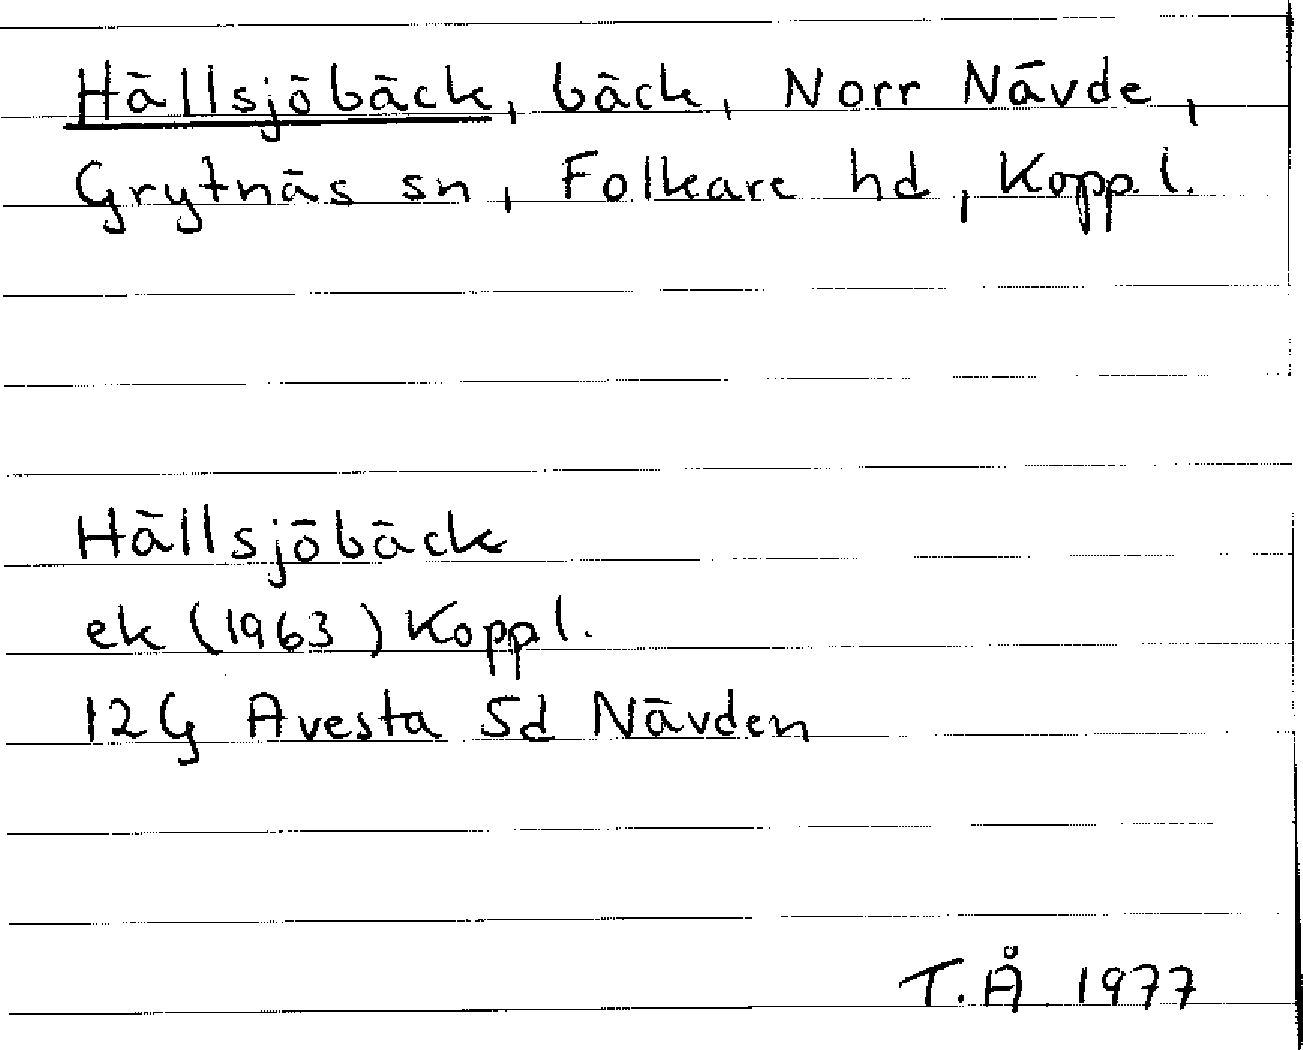 Hällsjöbäck, bäck, Norr Nävde,
Grytnäs sn, Folkare hd, Kopp l.
Hällsjöbäck
ek (1963) Kopp l.
12G Avesta Sd Nävden
T.Å 1977